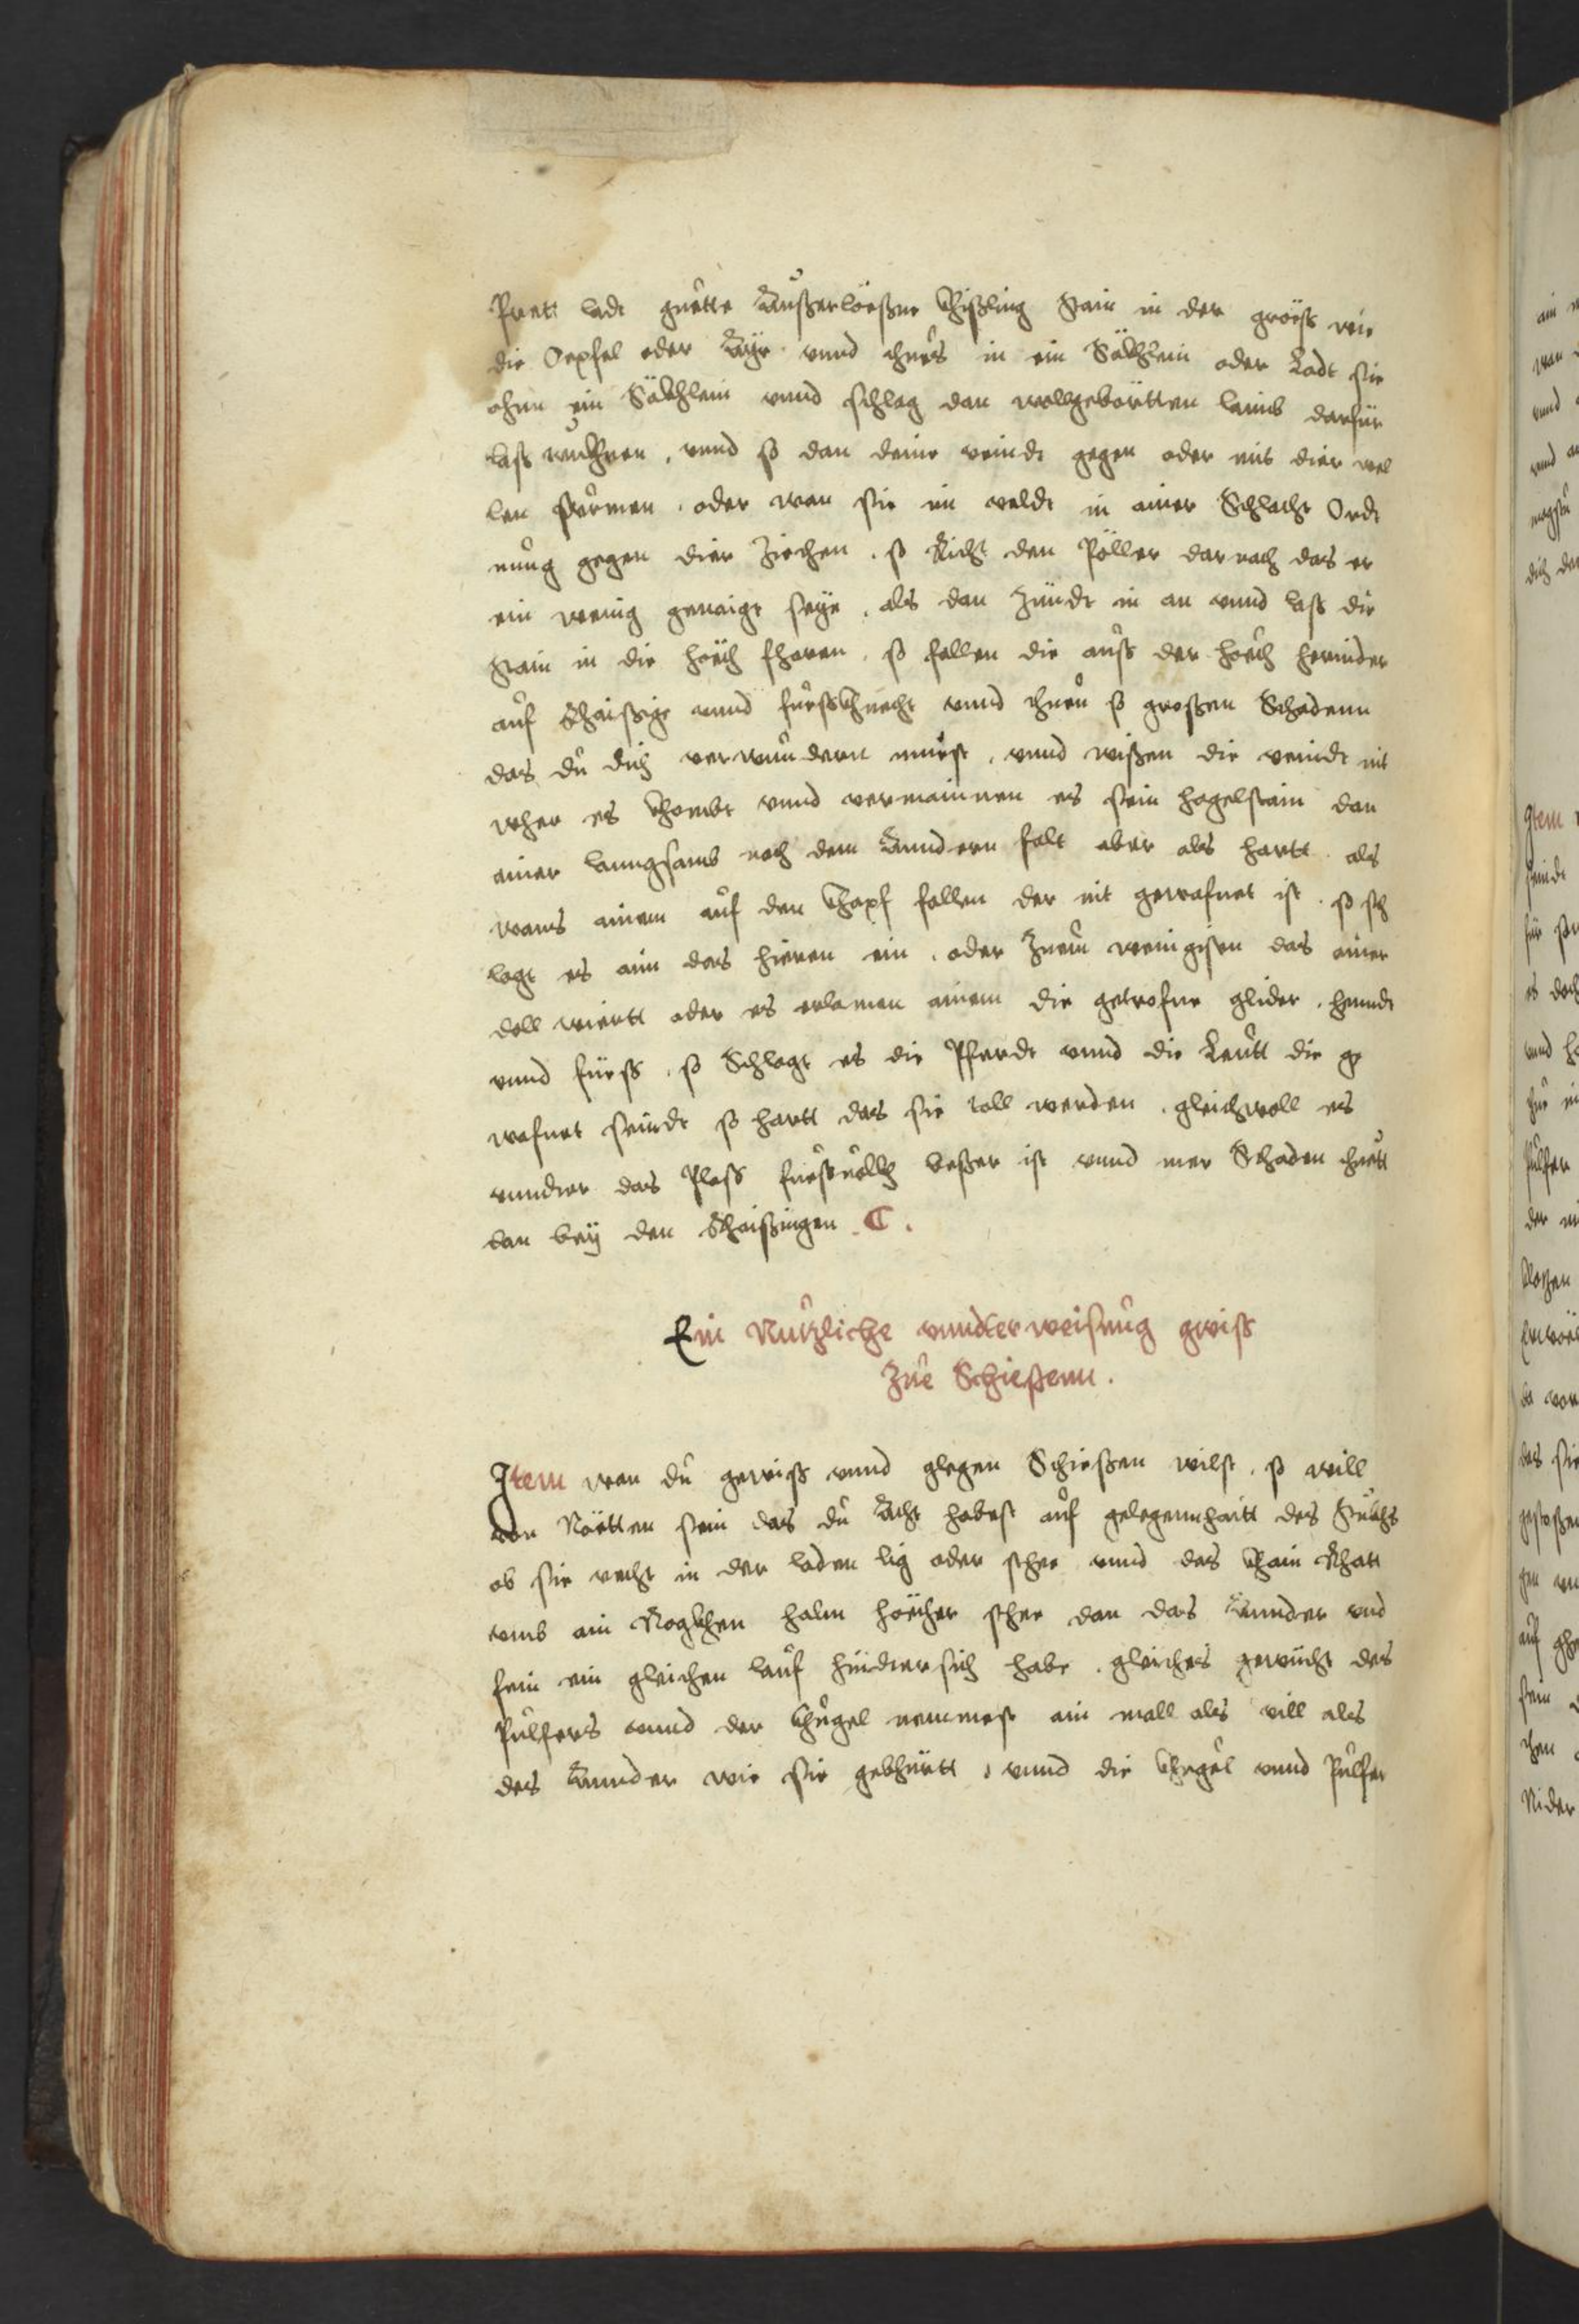 Pret: ladt guette Außerlösßne Khißling Stain in der gröess wie
die Oepfel oder Ayr. vnnd thues in ein Säckhlein oder Ladt sie
ohnn ein Säckhlein vnnd schlag dan wollgeböertten laimb darfür
lass trükhnen, vnnd so dan deine veindt gegen oder mit dier wel
len stürmen. oder wan sie im veldt in ainer Schlacht Ordt
nung gegen dier Ziechen. so Richt den Pöller darnach das er
ein wenig genaigt seye. als dan Zündt in an vnnd lass die
Stain in die höch fharen. so fallen die auss der höch herinder
auf Rhaißige vnnd fuessKhnecht vnnd thuen so großen Schadenn
das du dich verwundern muest. vnnd wißen die veindt nit
wher es Khombt vnnd vermainnen es sein hagelstain dan
ainer lanngsamb nach dem Anndern falt aber als hartt als
wans ainem auf den Khopf fallen der nit gewafnet ist. so sch
lagt es aim das hieren ein. oder Zuem wenigisten das ainer
doll wiertt oder es erlamen ainem die getrofne glider. henndt
vnnd füess. so Schlagt es die Pferdt vnnd die Leütt die ge
wafnet seindt so hartt das sie toll werden. gleichwoll es
vnndter das Ploss fuessvolkh besser ist vnnd mer Schaden thuett
dan bey den Rhaißingen. C.
Ein Nutzliche vnndterweisung gwiss
Zue Schießenn.
Item wan du gewiss vnnd glegen Schießen wilst. so will
von Nöetten sein das du Acht habest auf gelegennhaitt des Stukhs
ob sie recht in der laden lig oder stehe vnnd das Khain Rhatt
vmb ain Rogkhen halm höecher stehe dan das Annder vnd
fein ein gleichen lauf hindter sich habe. gleiches gewicht des
Pulfers vnnd der Khugel nemmest ain mall als vill als
des Annder wie sie gebhürtt. vnnd die Khugel vnnd Pulfer